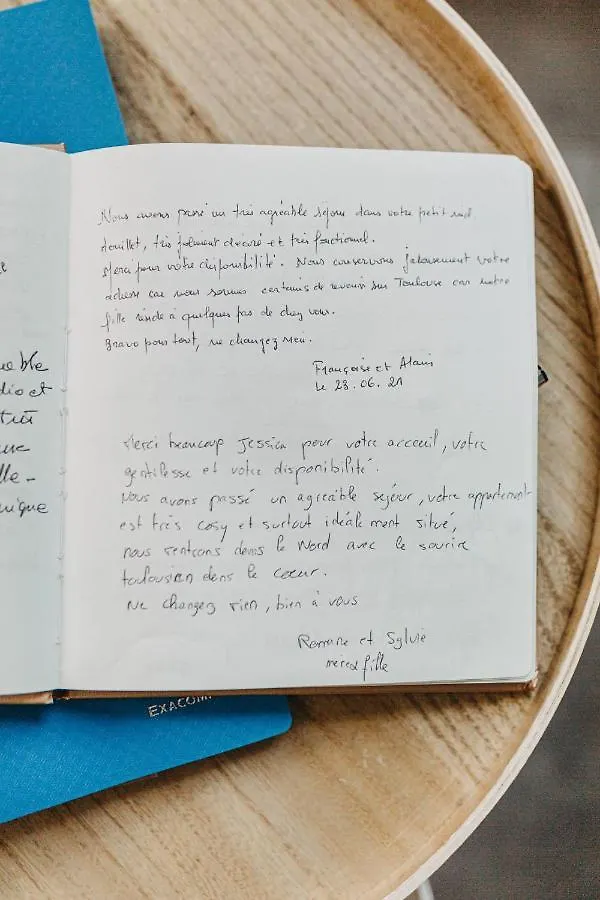 Nous avons passé un très agréable séjour dans votre petit nid
douillet, très joliment décoré et très fonctionnel.
Merci pour votre disponibilité. Nous conservons jalousement votre
adresse car nous sommes certains de revenir sur Toulouse car notre
fille réside à quelques pas de chez vous.
Bravo pour tout, ne changez rien.
Françoise et Alain
Le 23.06.21
Merci beaucoup Jessica pour votre accueil, votre
gentillesse et votre disponibilité.
Nous avons passé un agréable séjour, votre appartement
est très cosy et surtout idéalement situé,
nous rentrons dans le Nord avec le sourire
toulousain dans le cœur.
Ne changez rien, bien à vous
Romane et Sylvie
mère et fille
EXACOM